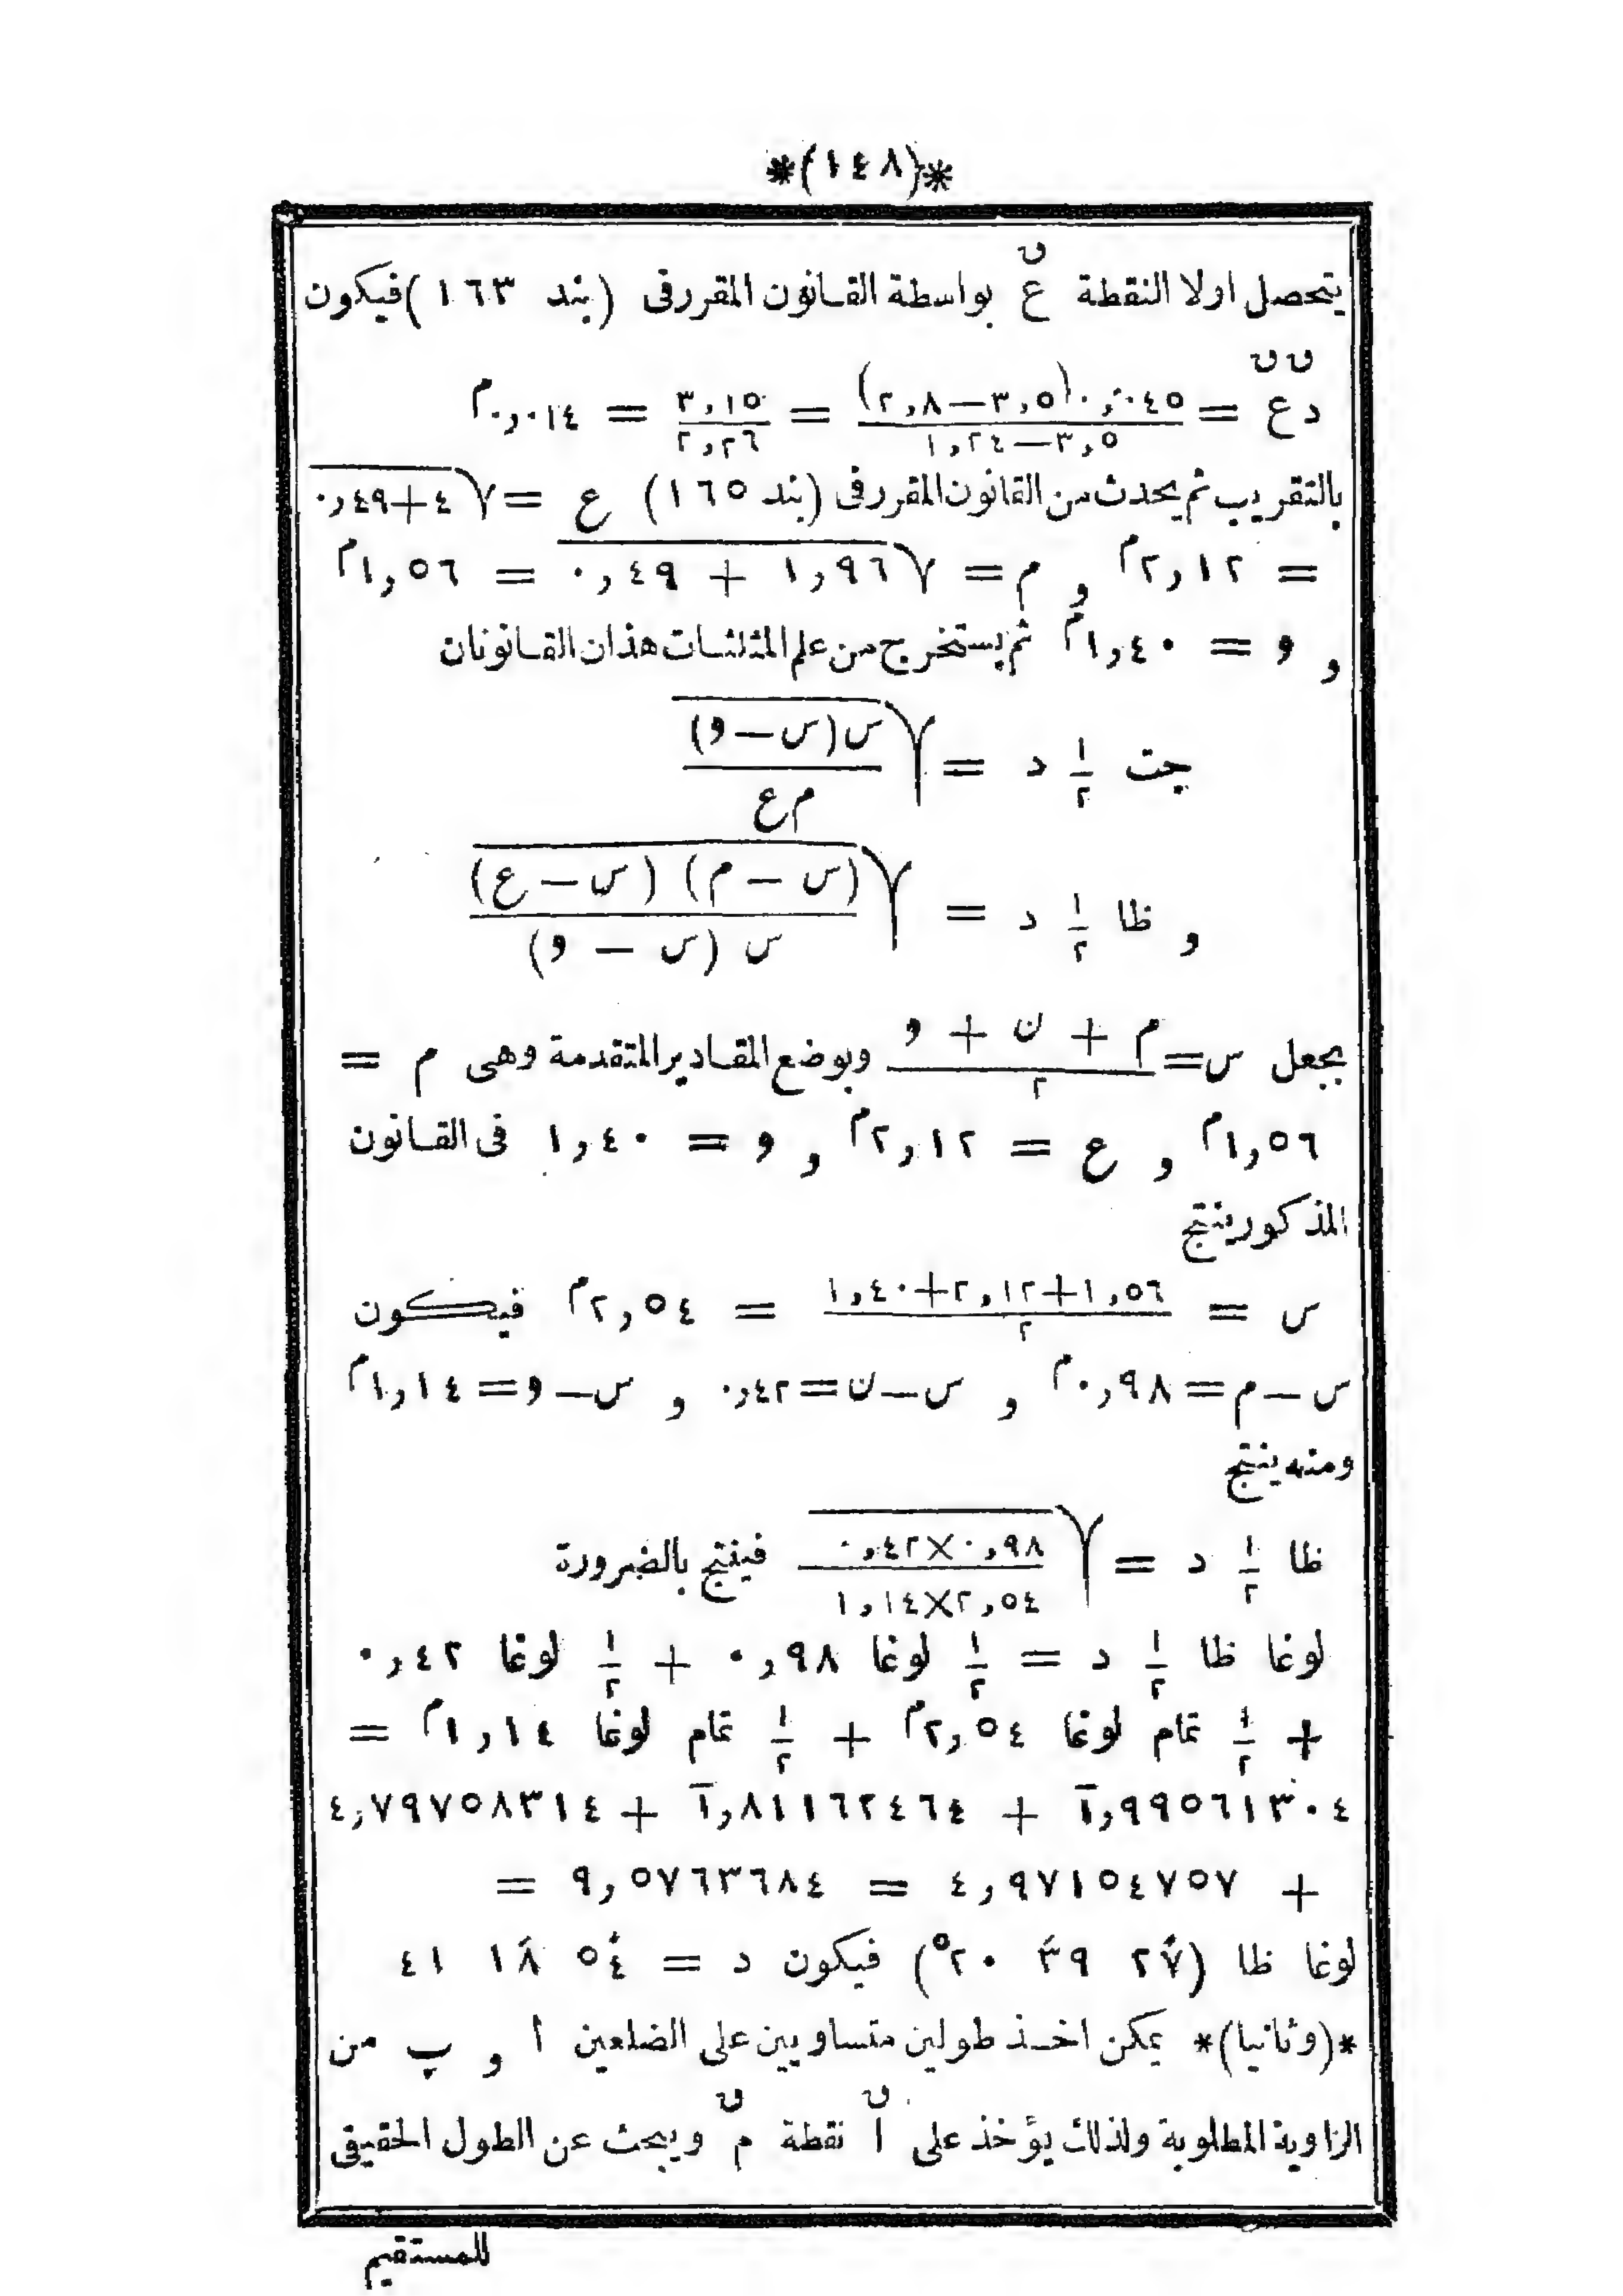 *(١٤٨)*
يتحصل اولا النقطة عٯ بواسطة القانون المقرر فى (بند ١٦٣) فيكون
دٯ عٯ = ٠,٠٤٥(٣,٥−٢,٨)/٣,٥−١,٢٤ = ٣,١٥/٢,٢٦ = ٠,٠١٤م
بالتقريب ثم يحدث من القانون المقرر فى (بند ١٦٥) ع = √٤+٠,٤٩
= ٢,١٢م و م = √١,٩٦ + ٠,٤٩ = ١,٥٦م
و و = ١,٤٠م ثم يستخرج من علم المثلثات هذان القانونان
جت ١/٢ د = √س(س−و)/م ع
و ظا ١/٢ د = √(س − م) (س − ع)/س (س − و)
بجعل س = م + ن + و/٢ وبوضع المقادير المتقدمة وهى م =
١,٥٦م و ع = ٢,١٢م و و = ١,٤٠ فى القانون
المذكور ينتج
س = ١,٥٦+٢,١٢+١,٤٠/٢ = ٢,٥٤م فيكون
س − م = ٠,٩٨م و س − ن = ٠,٤٢ و س − و = ١,١٤م
ومنه ينتج
ظا ١/٢ د = √٠,٩٨×٠,٤٢/٢,٥٤×١,١٤ فينتج بالضرورة
لوغا ظا ١/٢ د = ١/٢ لوغا ٠,٩٨ + ١/٢ لوغا ٠,٤٢
+ ١/٢ تمام لوغا ٢,٥٤م + ١/٢ تمام لوغا ١,١٤م =
١̄,٩٩٥٦١٣٠٤ + ١̄,٨١١٦٢٤٦٤ + ٤,٧٩٧٥٨٣١٤
+ ٤,٩٧١٥٤٧٥٧ = ٩,٥٧٦٣٦٨٤ =
لوغا ظا (٢٧ ٣٩ ٢٠°) فيكون د = ٥٤ ١٨ ٤١
*(وثانيا)* يمكن اخذ طولين متساويين على الضلعين أ و پ من
الزاوية المطلوبة ولذلك يؤخذ على أٯ نقطة مٯ ويبحث عن الطول الحقيقى
للمستقيم